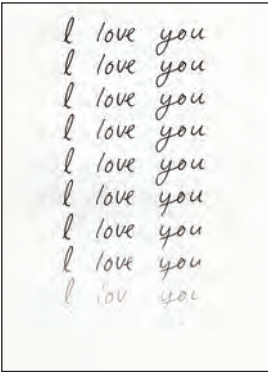 I love you
I love you
I love you
I love you
I love you
I love you
I love you
I love you
I lov you